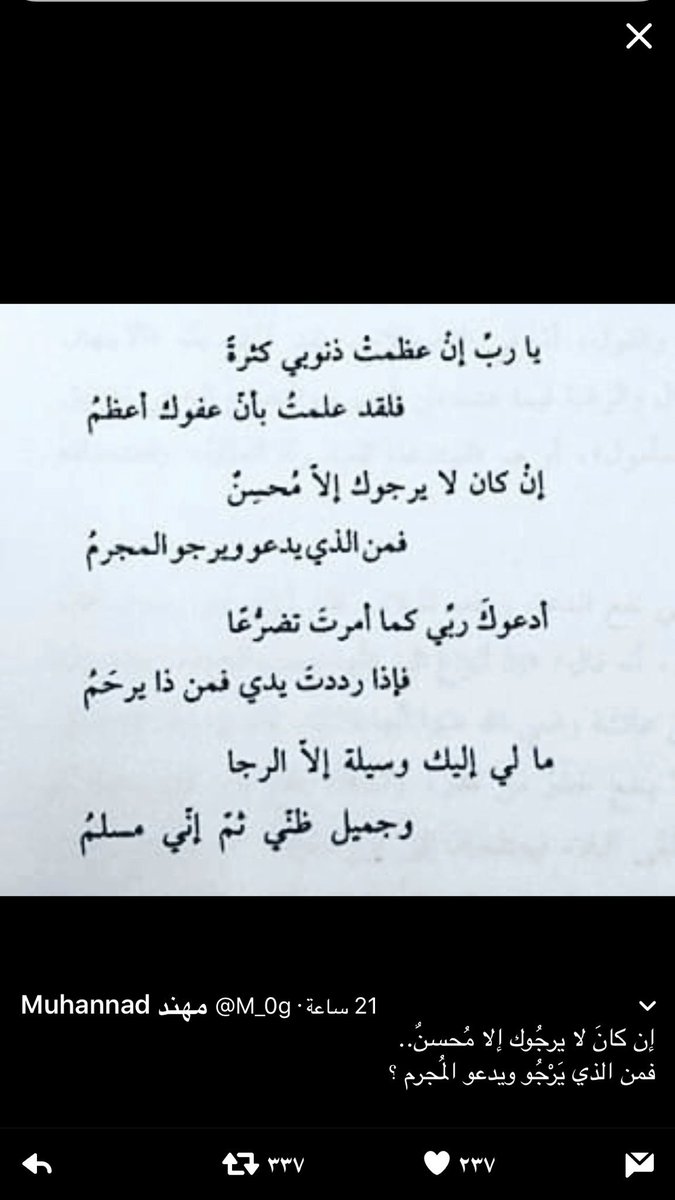 يا ربِّ إنْ عظمتْ ذنوبي كثرةً
فلقد علمتُ بأنّ عفوك أعظمُ
إنْ كان لا يرجوك إلاّ مُحسِنٌ
فمن الذي يدعو ويرجو المجرمُ
أدعوكَ ربّي كما أمرتَ تضرُّعًا
فإذا رددتَ يدي فمن ذا يرحَمُ
ما لي إليك وسيلة إلاّ الرجا
وجميل ظنّي ثمّ إنّي مسلمُ
Muhannad مهند @M_0g · 21 ساعة
إن كانَ لا يرجُوك إلا مُحسنٌ..
فمن الذي يَرْجُو ويدعو المُجرم ؟
٣٣٧ ٢٣٧